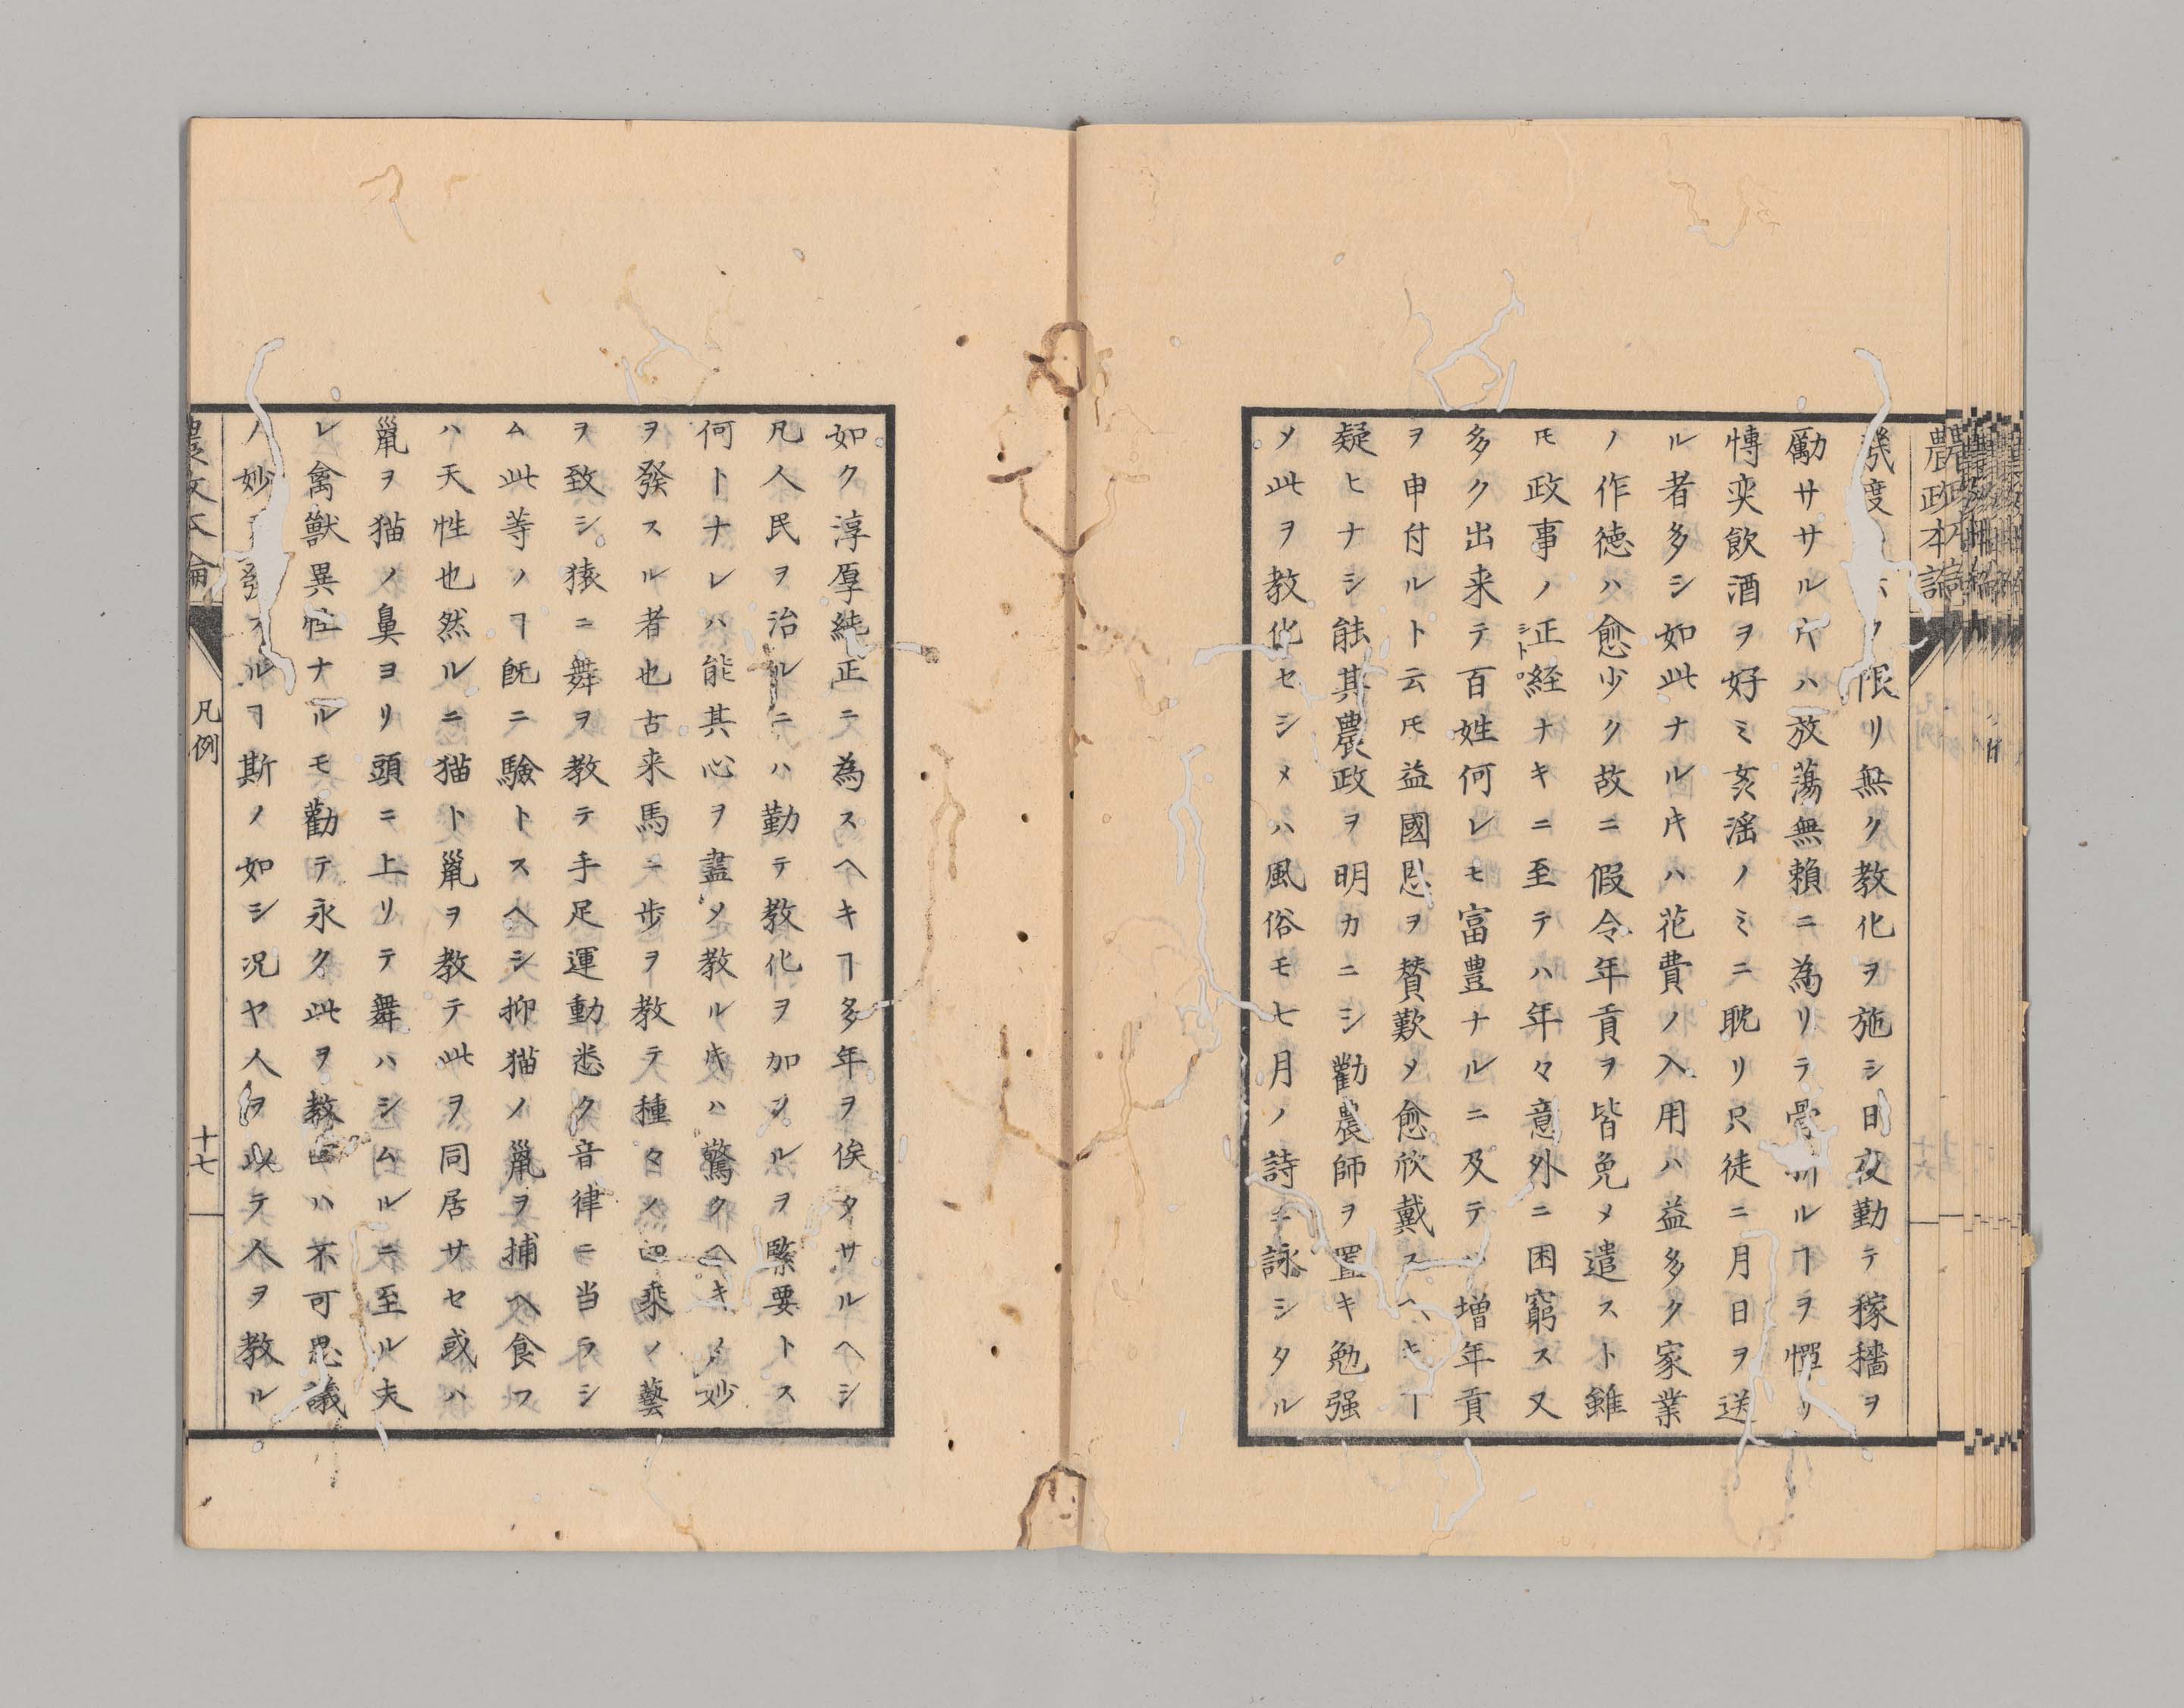 農政本論
幾度 ク限リ無ク教化ヲ施シ日夜勤テ稼穡ヲ
勵ササル片ハ放蕩無賴ニ為リテ骨 ルヿヲ憚リ
愽奕飲酒ヲ好ミ亥滛ノミニ耽リ只徒ニ月日ヲ送
ル者多シ如此ナル片ハ花費ノ入用ハ益多ク家業
ノ作徳ハ愈少ク故ニ假令年貢ヲ皆免メ遣スト雖
𪜈政事ノ正経シトナキニ至テハ年々意外ニ困窮ス又
多ク出来テ百姓何レモ富豊ナルニ及テハ増年貢
ヲ申付ルト云𪜈益國恩ヲ賛歎メ愈欣戴スヘキヿ
疑ヒナシ能其農政ヲ明カニシ勸農師ヲ置キ勉强
メ此ヲ教化セシメハ風俗モ七月ノ詩ニ詠シタル
如ク淳厚純正ニ為スヘキヿ多年ヲ俟タサルヘシ
凡人民ヲ治ルニハ勤テ教化ヲ加フルヲ緊要トス
何トナレハ能其心ヲ盡メ教ル片ハ驚クヘキノ妙
ヲ發スル者也古来馬ニ歩ヲ教テ種々ノ曲乘ノ藝
ヲ致シ猿ニ舞ヲ教テ手足運動悉ク音律ニ当ラシ
ム此等ノヿ既ニ驗トスヘシ抑猫ノ鼠ヲ捕ヘ食フ
ハ天性也然ルニ猫ト鼠ヲ教テ此ヲ同居サセ或ハ
鼠ヲ猫ノ鼻ヨリ頭ニ上リテ舞ハシムルニ至ル夫
レ禽獣異性ナルモ勸テ永ク此ヲ教 ハ不可思議
ノ妙 發スルヿ斯ノ如シ況ヤ人ヲ以テ人ヲ教ル
農政本論
凡例
十七